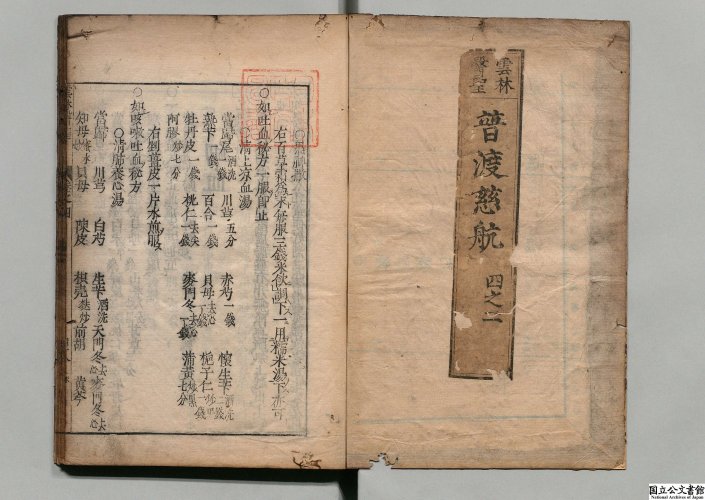 雲林
醫聖
普渡慈航 四之二
右百草霜為末每服三錢米飲調下一用糯米湯下亦可
○如吐血秘方一服即止
○清上涼血湯
當歸尾酒洗 川芎五分 赤芍一錢 懷生芐酒洗
百合一錢 貝母去心 梔子仁
牡丹皮一錢 桃仁去皮 麥門冬去心 蒲黃
阿膠炒七分
右剉薑皮一片水煎服
○如咳嗽吐血秘方
○清肺養心湯
當歸 川芎 白芍 生芐酒洗 天門冬去心 麥門冬去心
知母 貝母 陳皮 枳殼麩炒 前胡 黃芩
国立公文書館
National Archives of Japan